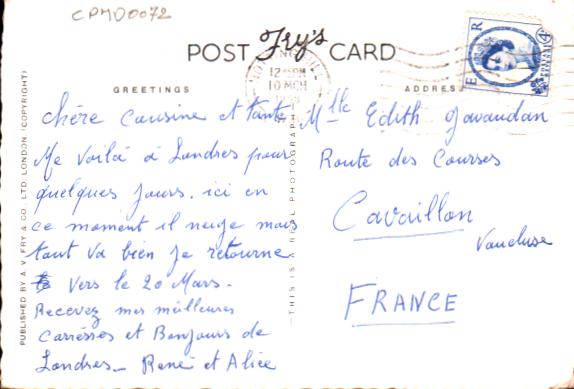 CPMD0072
POST Fry's CARD
GREETINGS
ADDRESS
12 PM
10 MCH
E R
4D
Chère Cousine et tante
Me Voilà à Londres pour
quelques jours. ici en
ce moment il neige mais
tout va bien je retourne
vers le 20 Mars.
Recevez mes meilleures
Carresses et Bonjours de
Londres_ René et Alice
Mlle Edith Gavaudan
Route des Courses
Cavaillon
Vaucluse
FRANCE
PUBLISHED BY A. V. FRY & CO. LTD. LONDON (COPYRIGHT)
THIS IS A REAL PHOTOGRAPH